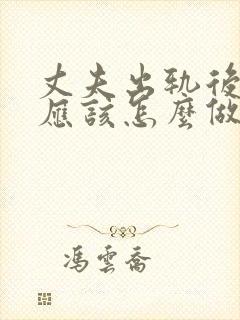 丈夫出轨後
應該怎麼做
馮雲喬